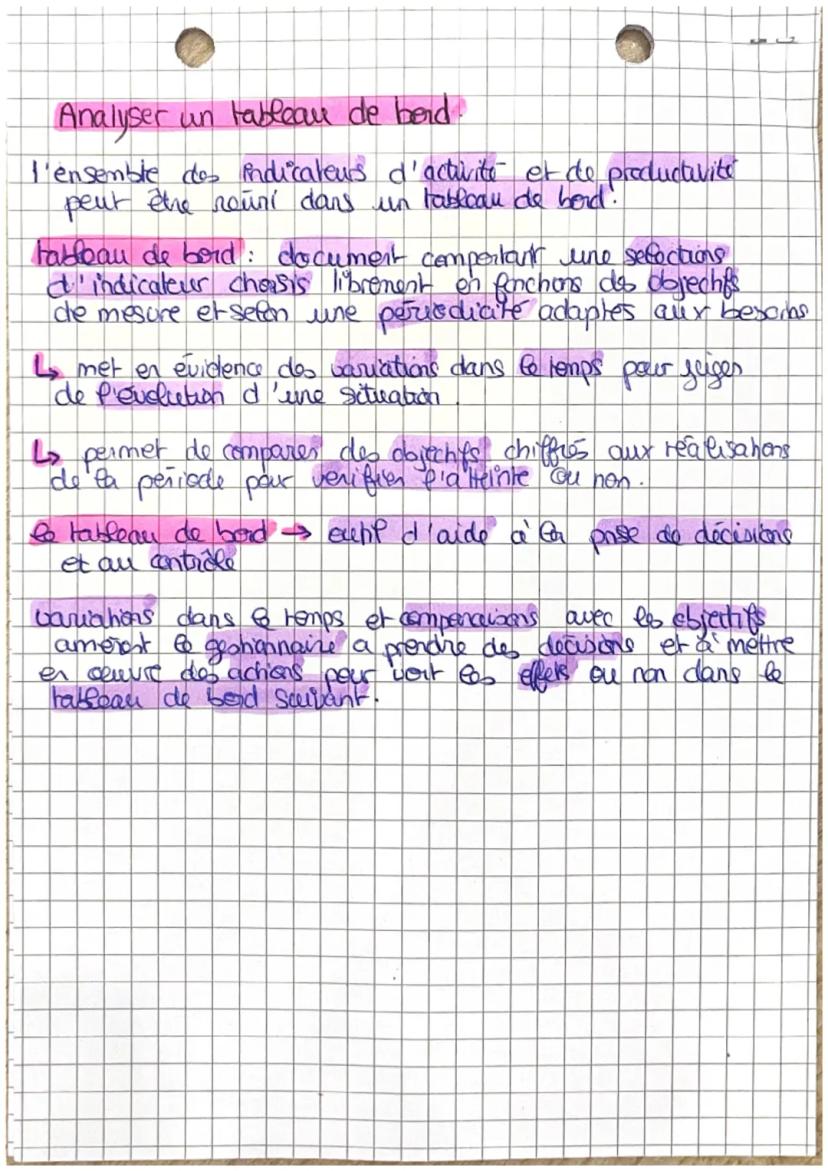 Analyser un tableau de bord.
l'ensemble des indicateurs d'activité et de productivité
peut être réuni dans un tableau de bord.
tableau de bord : document comportant une selections
d'indicateur choisis librement en fonctions des objectifs
de mesure et selon une périodicité adaptés aux besoins
↳ met en évidence des variations dans le temps pour juger
de l'évolution d'une situation.
↳ permet de comparer des objectifs chiffrés aux réalisations
de la période pour verifier l'atteinte ou non.
le tableau de bord → outil d'aide à la prise de décisions
et au contrôle
variations dans le temps et comparaisons avec les objectifs
amènent le gestionnaire a prendre des décisions et à mettre
en œuvre des actions pour voir les effets ou non dans le
tableau de bord suivant.